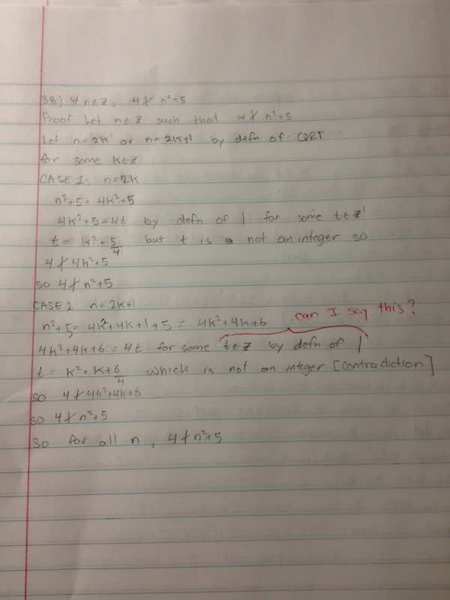 38) ∀ n∈Z, 4∤n²+5
Proof Let n∈Z such that 4∤n²+5
Let n=2k or n=2k+1 by defn of QRT
for some k∈Z
CASE 1: n=2k
n²+5=4k²+5
4k²+5=4t by defn of | for some t∈Z
t = k²+5/4 but t is not an integer so
4∤4k²+5
so 4∤n²+5
CASE 2 n=2k+1
can I say this?
n²+5=4k²+4k+1+5=4k²+4k+6
4k²+4k+6=4t for some t∈Z by defn of |
t = k²+k+6/4 which is not an integer [contradiction]
so 4∤4k²+4k+6
so 4∤n²+5
So for all n, 4∤n²+5